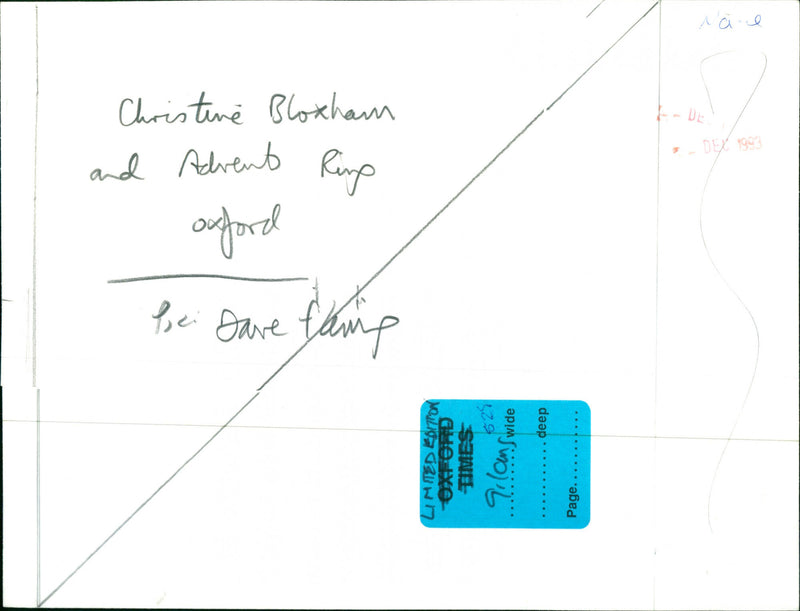 Christine Bloxham
and Advent Ring
Oxford
Pic: Dave Fleming
- DE
- DEC 1993
LIMITED EDITION
OXFORD
TIMES
..........wide
..........deep
Page..........